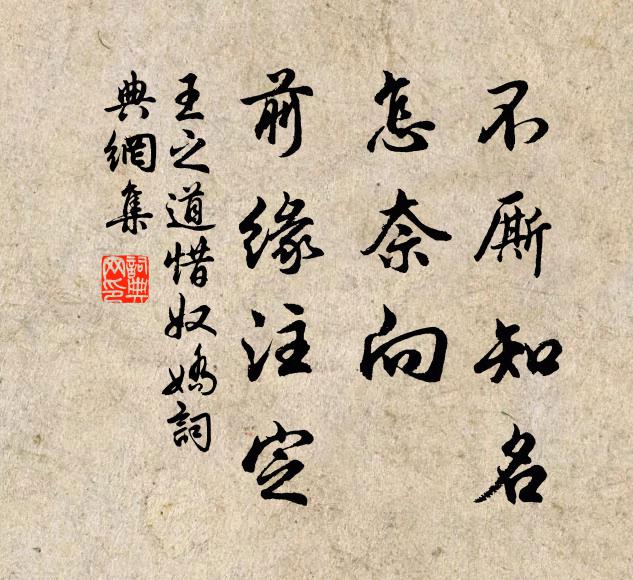 不厮知名
怎奈向
前緣注定
王之道惜奴嬌詞
典網集
詞典網印